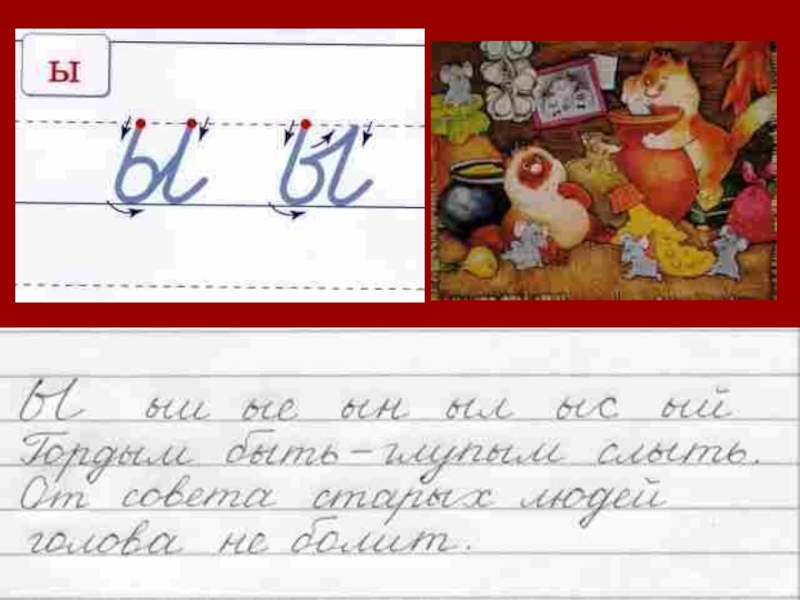 ы
ы ы
Ы ыш ые ын ыл ыс ый
Гордым быть – глупым слыть.
От совета старых людей
голова не болит.